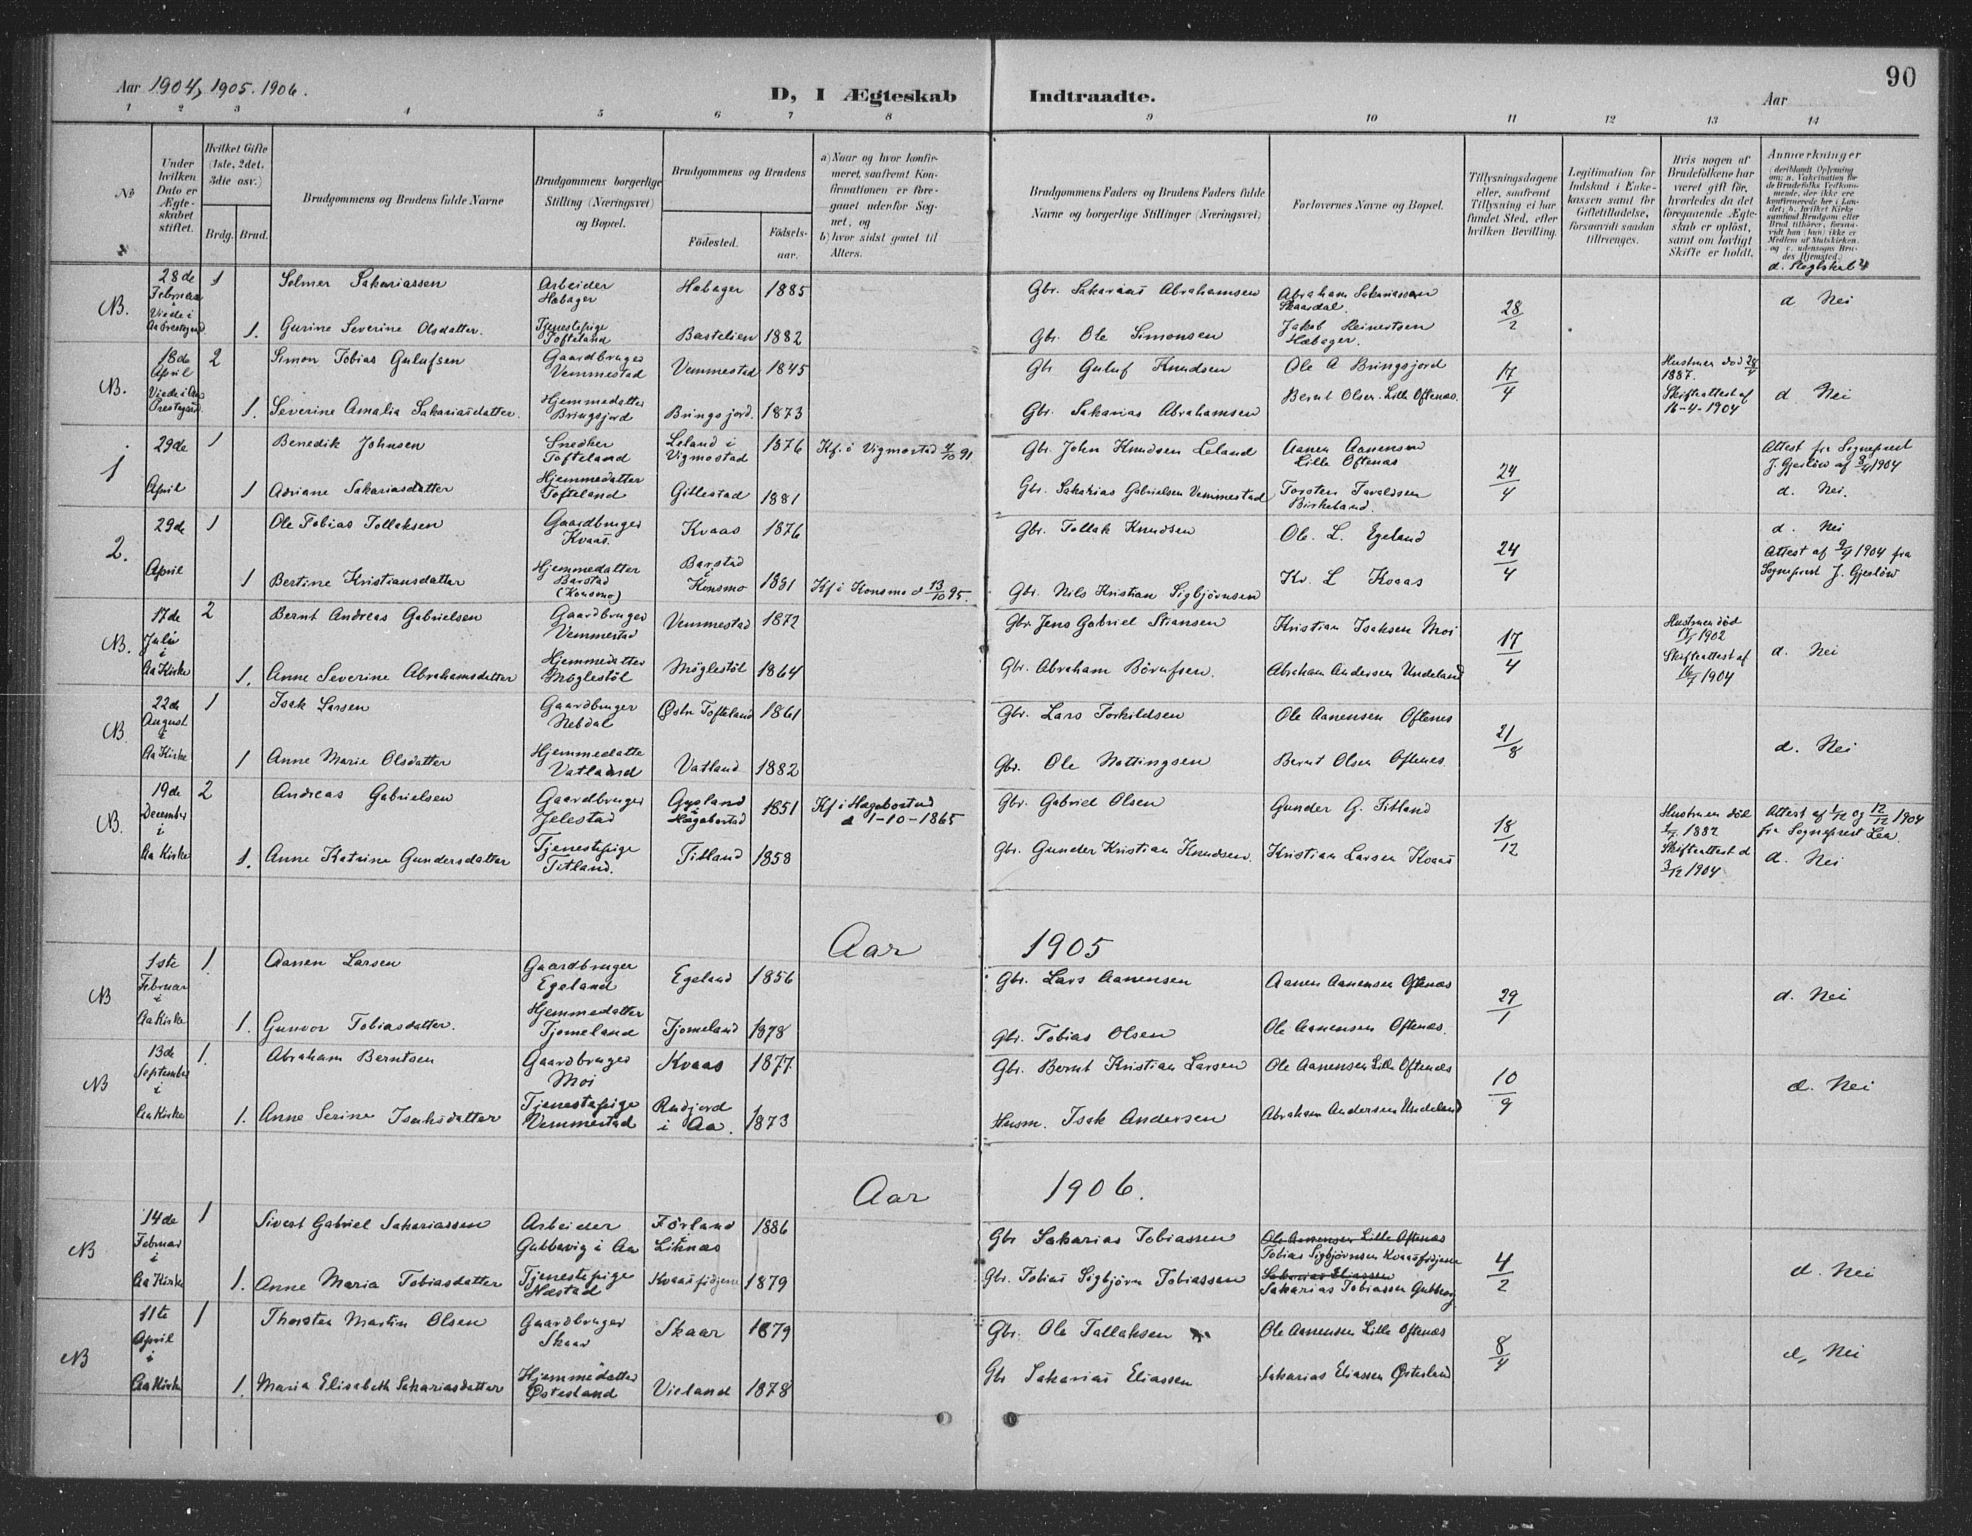 90
Aar 1904, 1905. 1906.
D, I Ægteskab Indtraadte.
Aar
1 2 3 4 5 6 7 8 9 10 11 12 13 14
No
Under hvilken Dato er Ægteskabet stiftet.
Hvilket Gifte (1ste, 2det, 3die osv.)
Brdg. Brud.
Brudgommens og Brudens fulde Navne
Brudgommens borgerlige Stilling (Næringsvei) og Bopæl.
Brudgommens og Brudens
Fødested. Fødselsaar.
a) Naar og hvor konfirmeret, saafremt Konfirmationen er foregaaet udenfor Sognet, og
b) hvor sidst gaaet til Alters.
Brudgommens Faders og Brudens Faders fulde Navne og borgerlige Stillinger (Næringsvei)
Forlovernes Navne og Bopæl.
Tillysningsdagene eller, saafremt Tillysning ei har fundet Sted, efter hvilken Bevilling.
Legitimation for Indskud i Enkekassen samt for Giftetilladelse, forsaavidt saadan tiltrænges.
Hvis nogen af Brudefolkene har været gift før, hvorledes da det foregaaende Ægteskab er opløst, samt om lovligt Skifte er holdt.
Anmærkninger
NB. 28de Februar Viede i 1 Selmer Sakariassen Arbeider Habager Habager 1885 Gbr. Sakarias Abrahamsen Abraham Sakariassen Skaardal 28/2 d Nei
1. Gurine Severine Olsdatter. Tjenestepige Tofteland Bastelien 1882 Gbr. Ole Simonsen Jakob Reinertsen Habager.
NB. 18de April 2 Simon Tobias Gulufsen Gaardbruger Vemmestad Vemmestad 1845 Gbr Guluf Knudsen Ole A Bringsjord 17/4 Hustruen død 1887. Skifteattest af 16-4-1904 d Nei
1. Severine Amalia Sakariasdatter. Hjemmedatter Bringsjord Bringsjord. 1873 Gbr. Sakarias Abrahamsen Bernt Olsen Lille Oftenas.
1 29de April 1 Benedik Johnsen Snedker Tofteland Leland i Vigmostad 1876 Kf. i Vigmostad 4/10 91 Gbr. John Knudsen Leland Aanen Aanensen Lille Oftenas 24/4 Attest fra Sogneprest J. Gjerløw af 3/4 1904
1 Adriane Sakariasdatter Hjemmedatter Tofteland Gillestad 1881 Gbr. Sakarias Gabrielsen Vemmestad Torsten Tavaldsen Birkeland. d. Nei.
2. 29de April 1 Ole Tobias Tollaksen Gaardbruger Kvaas. Kvaas 1876 Gbr. Tollak Knudsen Ole. L. Egeland 24/4 d. Nei Attest af 9/4 1904 fra Sogneprest J. Gjerløw
1 Bertine Kristiansdatter Hjemmedatter Barstad (Konsmo) Barstad i Konsmo 1881 Kf i Konsmo d 13/10 95. Gbr. Nils Kristian Sigbjørnsen Kr. L Kvaas
NB. 17de Juli i Aa Kirke 2 Bernt Andreas Gabrielsen Gaardbruger Vemmestad Vemmestad 1872 Gbr. Jens Gabriel Stiansen Kristian Isaksen Moi 17/4 Hustruen død 1902 Skifteattest af 16/7 1904 d. Nei
1. Anne Severine Abrahamsdatter Hjemmedatter Møglestøl Møglestøl 1864 Gbr. Abraham Børufsen. Abraham Andersen Undeland
NB 22de August i Aa Kirke 1 Isak Larsen Gaardbruger Nebdal Østr Tofteland 1861 Gbr. Lars Torkildsen Ole Aanensen Oftenes 21/8 d. Nei
1 Anne Marie Olsdatter Hjemmedatte Vatland Vatland 1882 Gbr. Ole Nottingsen Bernt Olsen Oftenes.
NB. 19de December i Aa Kirke 2 Andreas Gabrielsen Gaardbruger Jelestad Gysland i Hægebostad 1851 Kf i Hægebostad d 1-10-1865 Gbr. Gabriel Olsen Gunder G. Titland 18/12 Hustruen død 1882 Skifteattest d 3/12 1904 Attest af 1/12 og 12/12 1904 fra Sogneprest Lea. d. Nei
1. Anne Katrine Gundersdatter Tjenestepige Titland. Titland 1858 Gbr. Gunder Kristian Knudsen. Kristian Larsen Kvaas
Aar 1905
NB 1ste Februar i Aa Kirke 1. Aanen Larsen Gaardbruger Egeland Egeland 1856 Gbr. Lars Aanensen Aanen Aanensen Oftenæs 29/1 d. Nei
1. Gunvor Tobiasdatter. Hjemmedatter Tjomeland Tjomeland 1878 Gbr. Tobias Olsen Ole Aanensen Oftenæs.
NB 13de September i Aa Kirke 1. Abraham Berntsen Gaardbruger Moi Kvaas 1877. Gbr. Bernt Kristian Larsen Ole Aanensen Lille Oftenæs 10/9 d. Nei
1. Anne Serine Isaksdatter Tjenestepige Vemmestad Rudjord i Aa. 1873 Husm. Isak Andersen Abraham Andersen Undeland
Aar 1906.
NB 14de Februar i Aa Kirke 1 Sivert Gabriel Sakariassen Arbeider Gubbavig i Aa Førland Liknæs 1886 Gbr Sakarias Tobiassen Ole Aanensen Lille Oftenæs Tobias Sigbjørnsen Kvaasfidjene 4/2 d. Nei
1. Anne Maria Tobiasdatter Tjenestepige Næstad Kvaasfidjene 1879 Gbr. Tobias Sigbjørn Tobiassen Sakarias Eliassen Sakarias Tobiassen Gubbavig
NB 11te April i Aa Kirke 1 Thorsten Martin Olsen Gaardbruger Skaar Skaar 1879 Gbr. Ole Tallaksen Ole Aanensen Lille Oftenæs 8/4 d, Nei
1. Maria Elisabeth Sakariasdatter Hjemmedatter Østesland Vieland 1878 Gbr Sakarias Eliassen Sakarias Eliassen Østesland